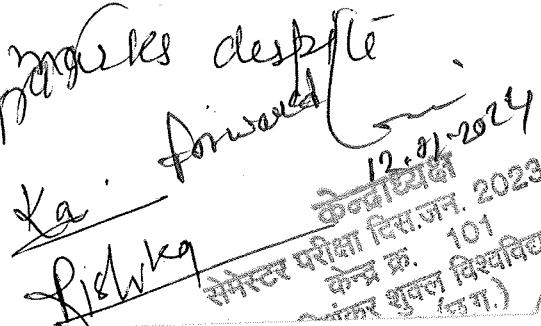 despite
Ka. forwarded
12.01.2024
Rishika
केन्द्राध्यक्ष
सेमेस्टर परीक्षा दिस.जन. 2023
केन्द्र क्र. 101
शुक्ल विश्वविद्या
(छ.ग.)